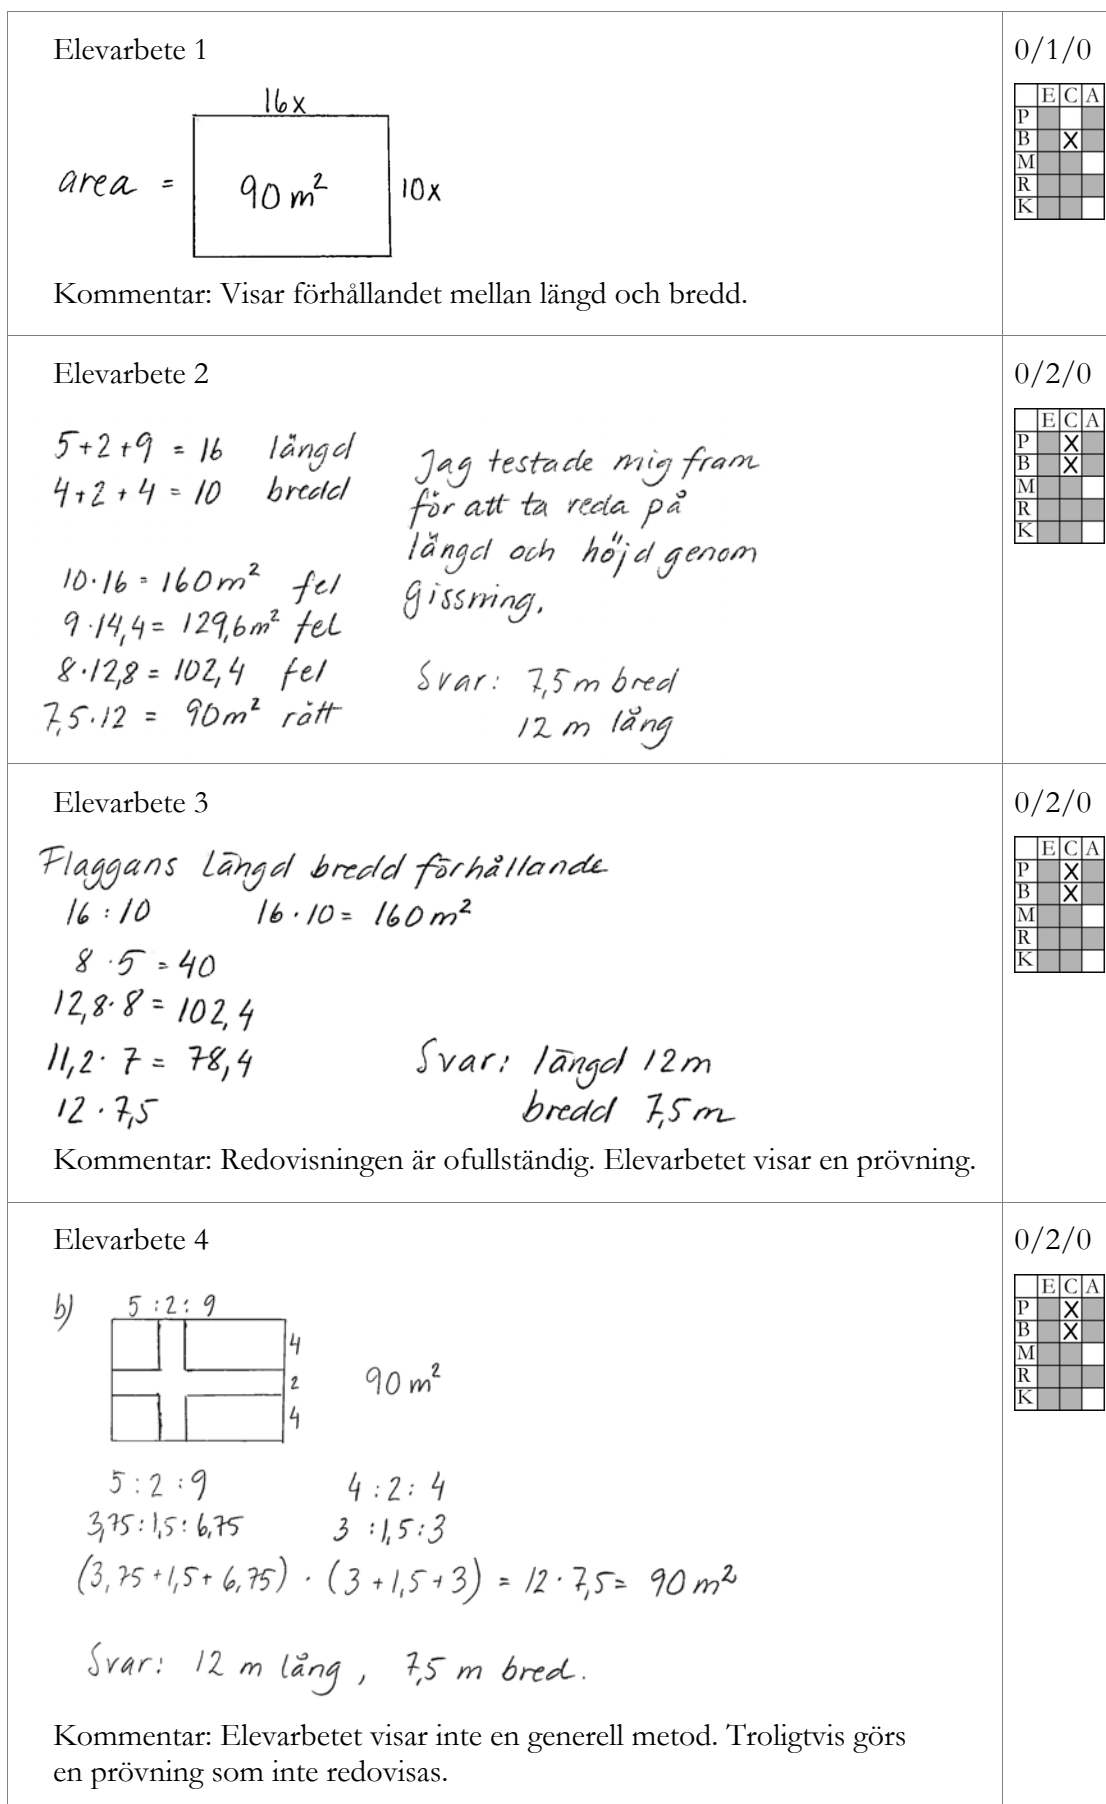 Elevarbete 1
0/1/0
16x
area = 90 m² 10x
E C A
P
B X
M
R
K
Kommentar: Visar förhållandet mellan längd och bredd.
Elevarbete 2
0/2/0
5+2+9 = 16 längd
4+2+4 = 10 bredd
10·16 = 160 m² fel
9·14,4 = 129,6 m² fel
8·12,8 = 102,4 fel
7,5·12 = 90 m² rätt
Jag testade mig fram
för att ta reda på
längd och höjd genom
gissning.
Svar: 7,5 m bred
12 m lång
E C A
P X
B X
M
R
K
Elevarbete 3
0/2/0
Flaggans längd bredd förhållande
16 : 10 16 · 10 = 160 m²
8 · 5 = 40
12,8 · 8 = 102,4
11,2 · 7 = 78,4
12 · 7,5
Svar: längd 12 m
bredd 7,5 m
E C A
P X
B X
M
R
K
Kommentar: Redovisningen är ofullständig. Elevarbetet visar en prövning.
Elevarbete 4
0/2/0
b) 5 : 2 : 9
4
2
4
90 m²
5 : 2 : 9 4 : 2 : 4
3,75 : 1,5 : 6,75 3 : 1,5 : 3
(3,75 + 1,5 + 6,75) · (3 + 1,5 + 3) = 12 · 7,5 = 90 m²
Svar: 12 m lång, 7,5 m bred.
E C A
P X
B X
M
R
K
Kommentar: Elevarbetet visar inte en generell metod. Troligtvis görs
en prövning som inte redovisas.